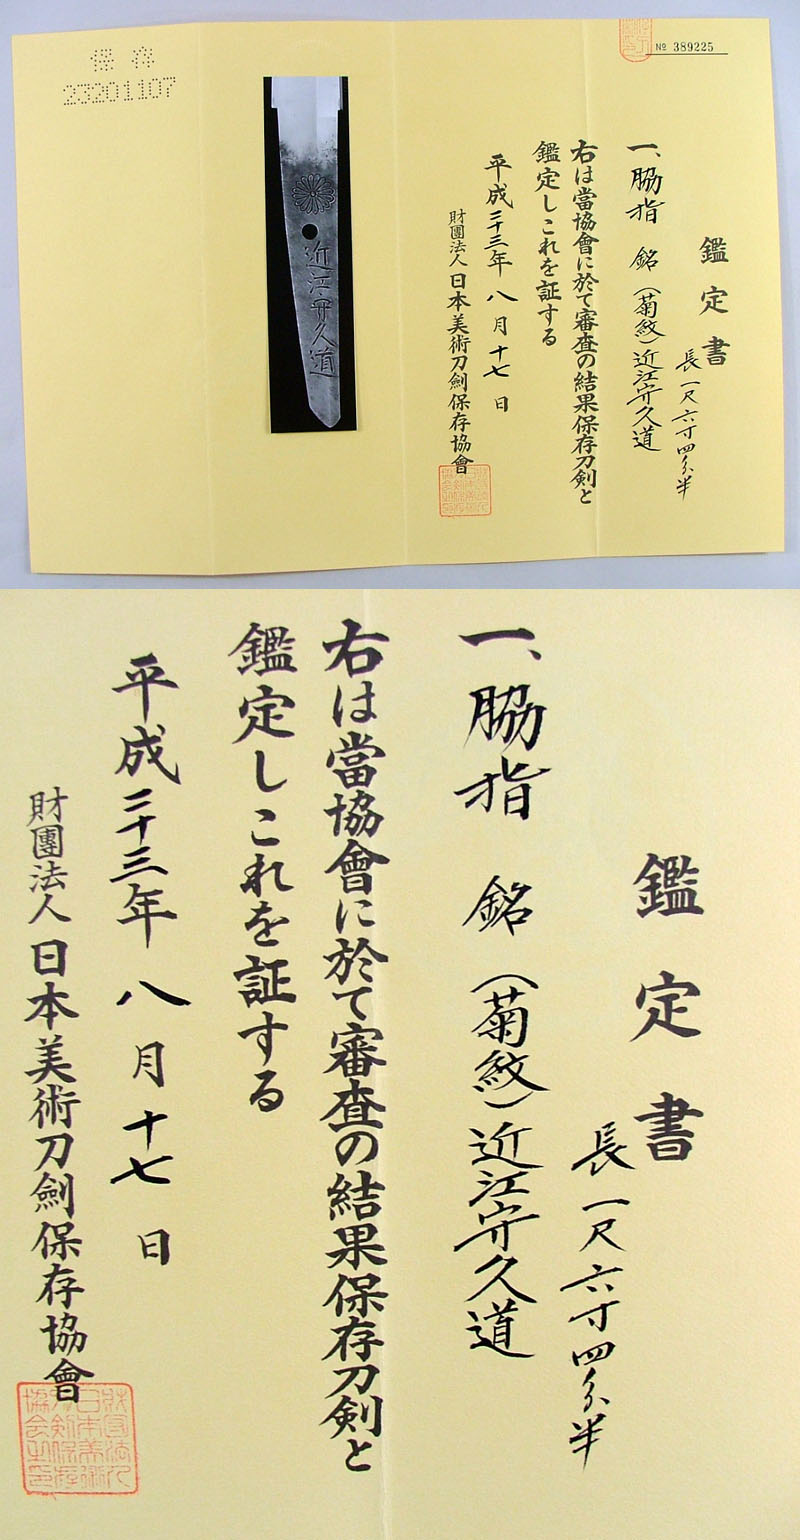 保存
23201107
近江守久道
№ 389225
鑑定書
長一尺六寸四分半
一、脇指 銘(菊紋)近江守久道
右は當協會に於て審査の結果保存刀剣と
鑑定しこれを証する
平成二十三年八月十七日
財團法人日本美術刀劍保存協會
鑑定書
長一尺六寸四分半
一、脇指 銘(菊紋)近江守久道
右は當協會に於て審査の結果保存刀剣と
鑑定しこれを証する
平成二十三年八月十七日
財團法人日本美術刀劍保存協會